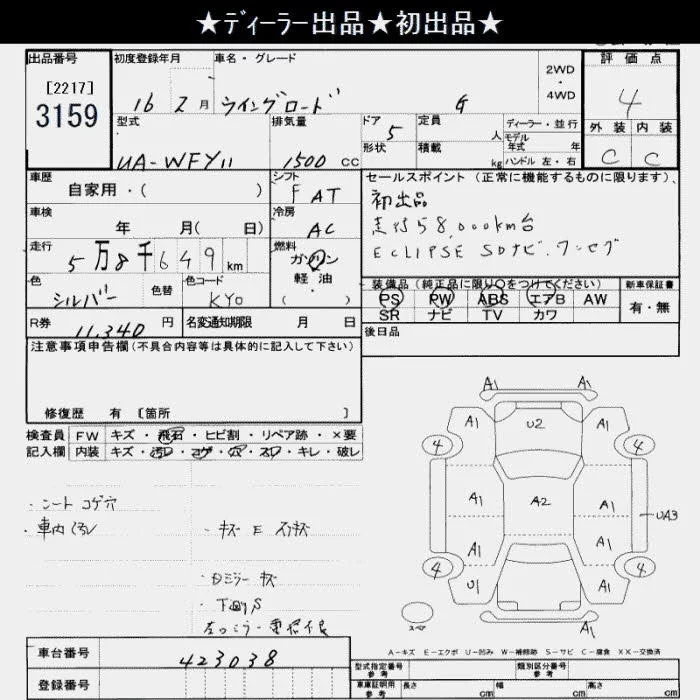 ★ディーラー出品★初出品★
出品番号 初度登録年月 車名・グレード 2WD・4WD 評価点
[2217]
3159
16 2月 ウイングロード G 4
型式 排気量 ドア 5 定員 人 ディーラー・並行 外装 内装
UA-WFY11 1500 CC 形状 積載 kg モデル年式 年 ハンドル 左・右 C C
車歴 自家用・( ) シフト F AT セールスポイント (正常に機能するものに限ります)、
初出品
車検 年 月( 日) 冷房 AC 走行58,000km台
走行 5万8千649km 燃料 ガソリン 軽油・( ) ECLIPSE SDナビ.ワンセグ
色 シルバー 色替 色コード KY0 装備品 (純正品に限り○をつけてください) 新車保証書
PS PW ABS エアB AW 有・無
R券 11,340円 名変通知期限 月 日 SR ナビ TV カワ
注意事項申告欄(不具合内容等は具体的に記入して下さい) 後日品
修復歴 有 〔箇所 〕
検査員 FW キズ・飛石・ヒビ割・リペア跡・×要
記入欄 内装 キズ・汚レ・コゲ・穴・スレ・キレ・破レ
・シート コゲ穴
・車内 汚レ ・キズ E スリキズ
・Dミラー キズ
A1 A1
A1 U2 A1
4 4
A1 A2 A1 UA3
A1 A1
4 4
U1 A1
スペア A1
A-キズ E-エクボ U-凹み W-補修跡 S-サビ C-腐食 XX-交換済
車台番号 423038 型式指定番号 参考 類別区分番号 参考
登録番号 車庫証明用 参考 長さ cm 幅 cm 高さ cm